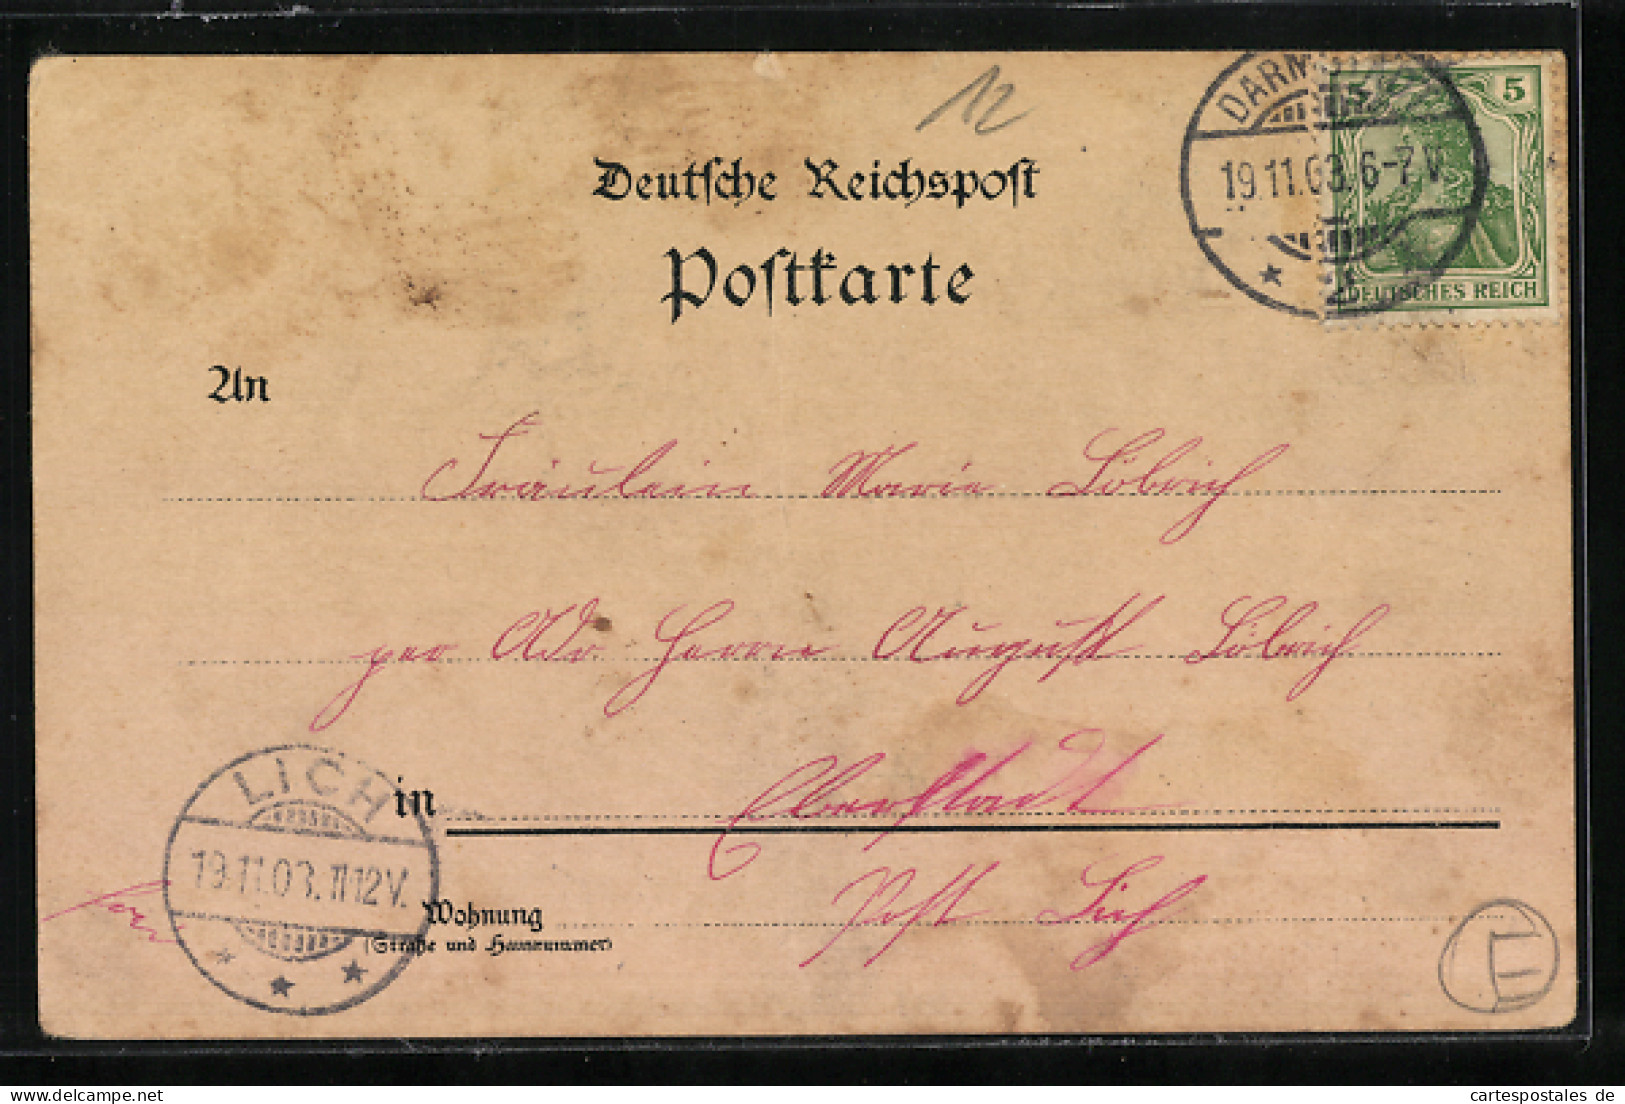 12
Deutsche Reichspost
Postkarte
DARMSTADT
19.11.03. 6-7 V.
5
DEUTSCHES REICH
An
Fräulein Marie Löbrich
per Adr. Herrn August Löbrich
in Eberstadt
Post Lich
Wohnung
(Straße und Hausnummer)
LICH
19.11.03. 11-12 V.
www.cartespostales.de
cartespostales de